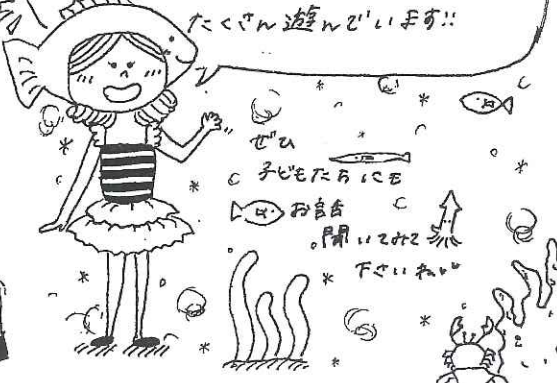 たくさん遊んでいます!!
ぜひ
子どもたちにも
お話
聞いてみて
下さいねㇾ